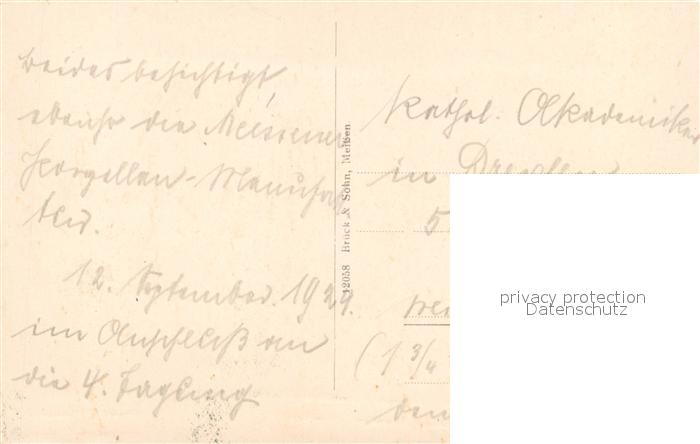 beides besichtigt,
ebenso die Meissener
Porzellan-Manufak
tur.
12. September 1929.
im Anschluß an
die 4. Tagung
12058 Brück & Sohn, Meißen.
Kathol. Akademiker
in Dresden
5
(1 3/4
den
privacy protection
Datenschutz